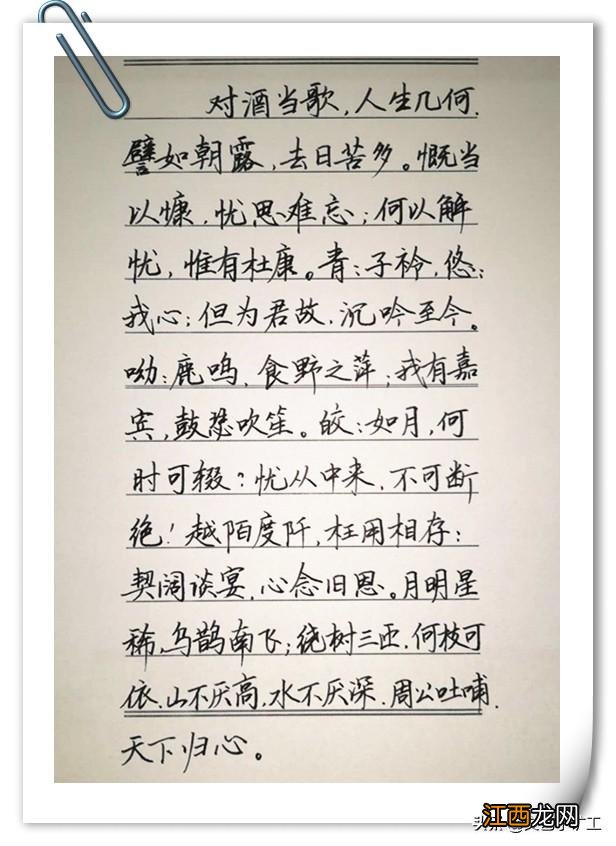 对酒当歌,人生几何.
譬如朝露,去日苦多。慨当
以慷,忧思难忘;何以解
忧,惟有杜康。青:子衿,悠:
我心;但为君故,沉吟至今。
呦:鹿鸣,食野之萍;我有嘉
宾,鼓瑟吹笙。皎:如月,何
时可辍?忧从中来,不可断
绝!越陌度阡,枉用相存;
契阔谈宴,心念旧恩。月明星
稀,乌鹊南飞;绕树三匝,何枝可
依.山不厌高,水不厌深.周公吐哺.
天下归心。
江西龙网